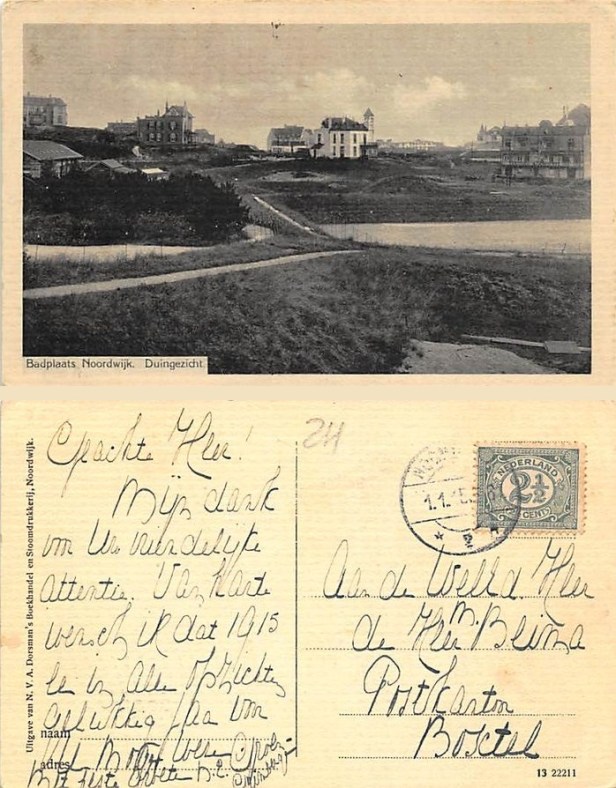 Badplaats Noordwijk. Duingezicht.
Uitgave van N. V. A. Dorsman's Boekhandel en Stoomdrukkerij, Noordwijk.
Geachte Heer!
Mijn dank
vor Uw vriendelijke
attentie. Van harte
wensch ik dat 1915
in alle opzichten
gelukkig jaar vor
U moge wezen
Met beste Groeten
naam
adres
24
1.1.15
NEDERLAND
2½
CENT
Aan de Weled. Heer
de Heer
Postkantoor
Boxtel
13 22211